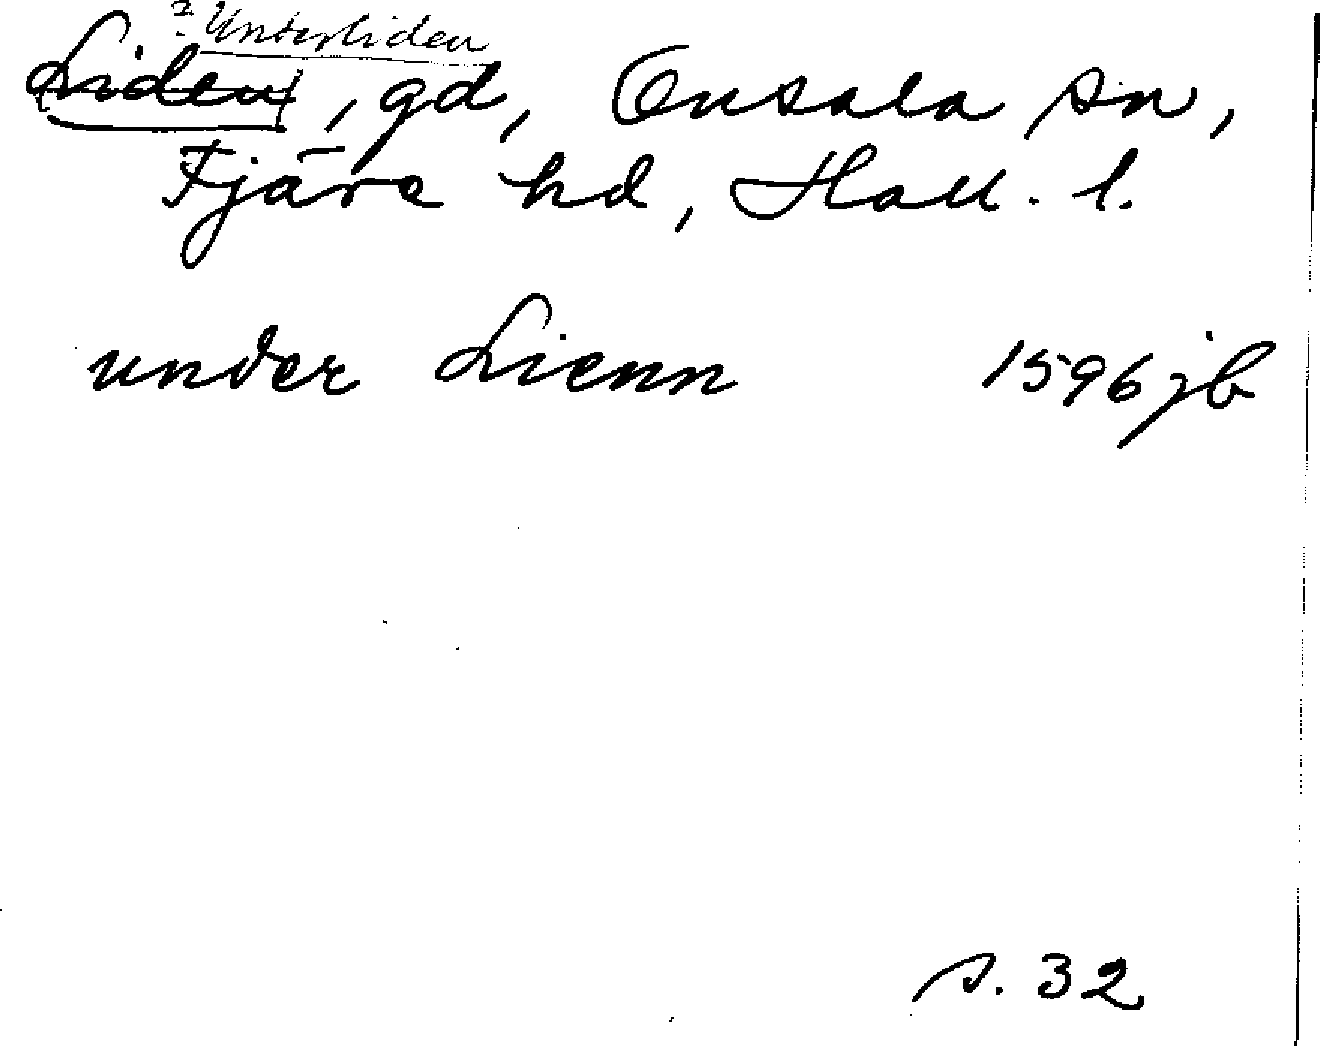 ? Underliden
Liden, gd, Onsala sn,
Fjäre hd, Hall. l.
under Lienn 1596 jb
s. 32